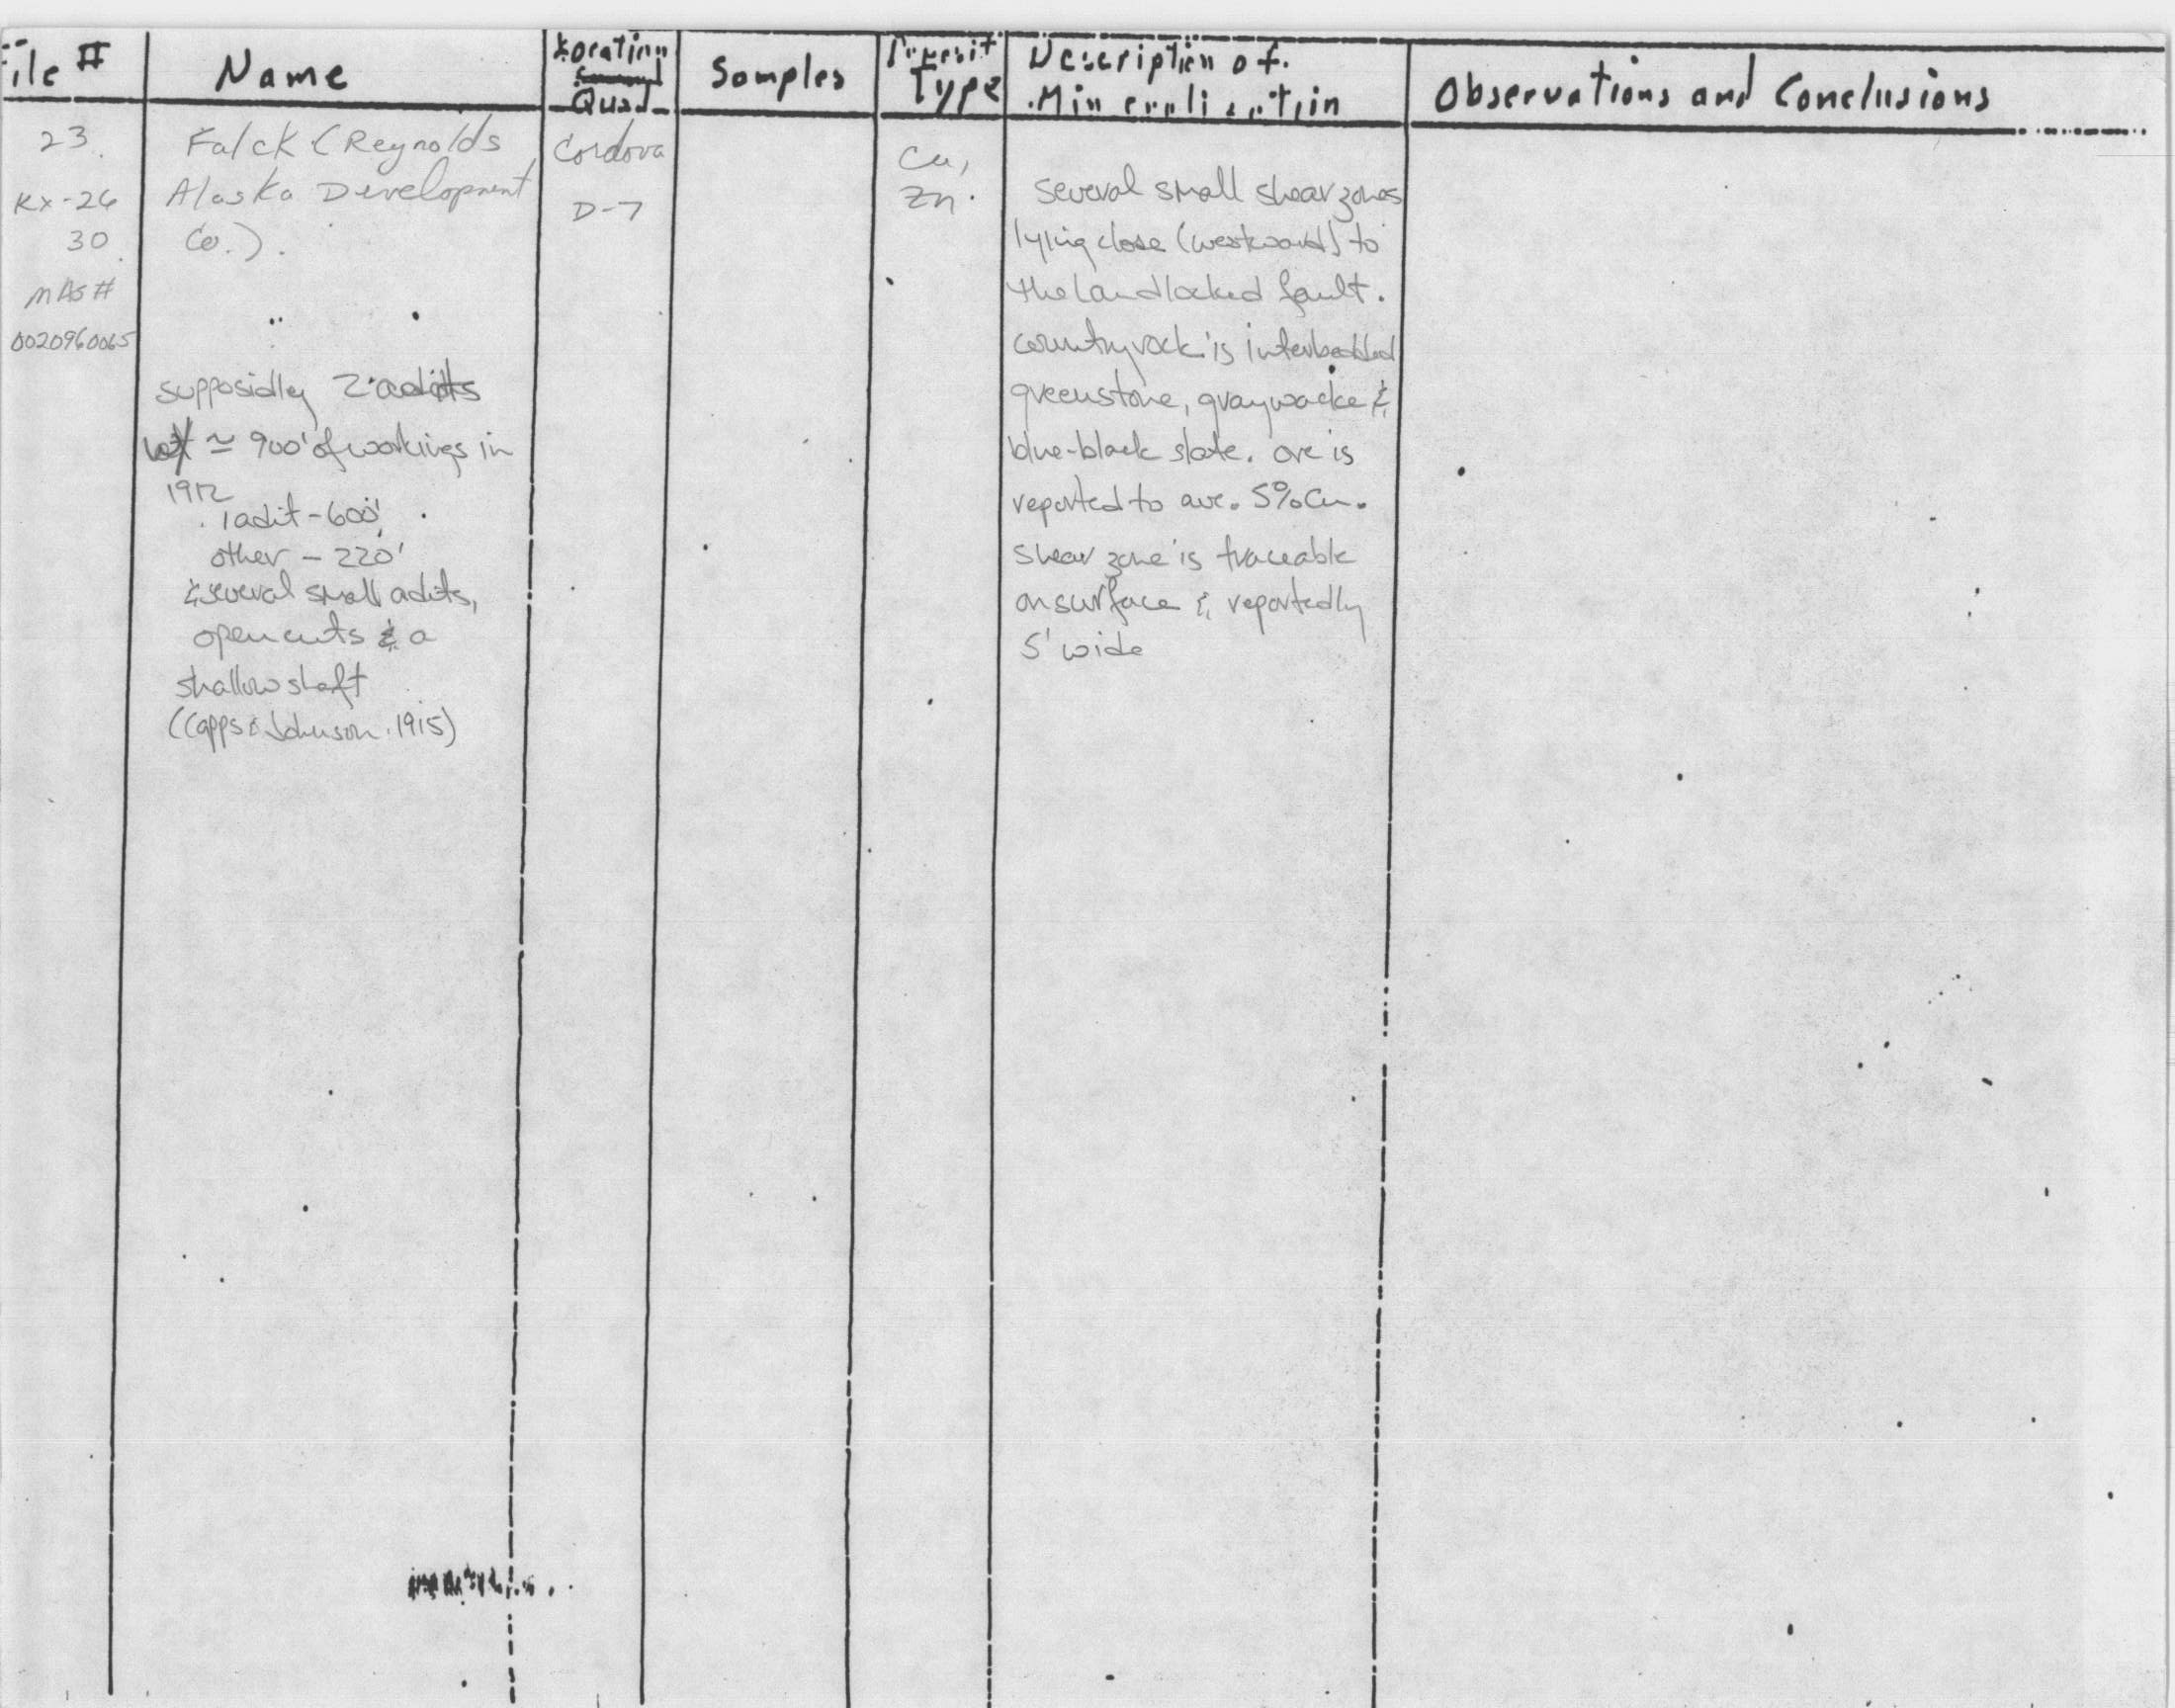 File #
Name
Location
Quad
Samples
Deposit
Type
Description of
Mineralization
Observations and Conclusions
23
Kx-26
30
MAS#
0020960065
Falck (Reynolds
Alaska Development
Co.).
supposidly 2 adits
w/ ≃ 900' of workings in
1912
1 adit - 600'
other - 220'
& several small adits,
open cuts & a
shallow shaft
(Capps & Johnson 1915)
Cordova
D-7
Cu,
Zn.
Several small shear zones
lying close (westward) to
the Landlocked fault.
country rock is interbedded
greenstone, graywacke &
blue-black slate. ore is
reported to ave. 5% Cu.
Shear zone is traceable
on surface & reportedly
5' wide